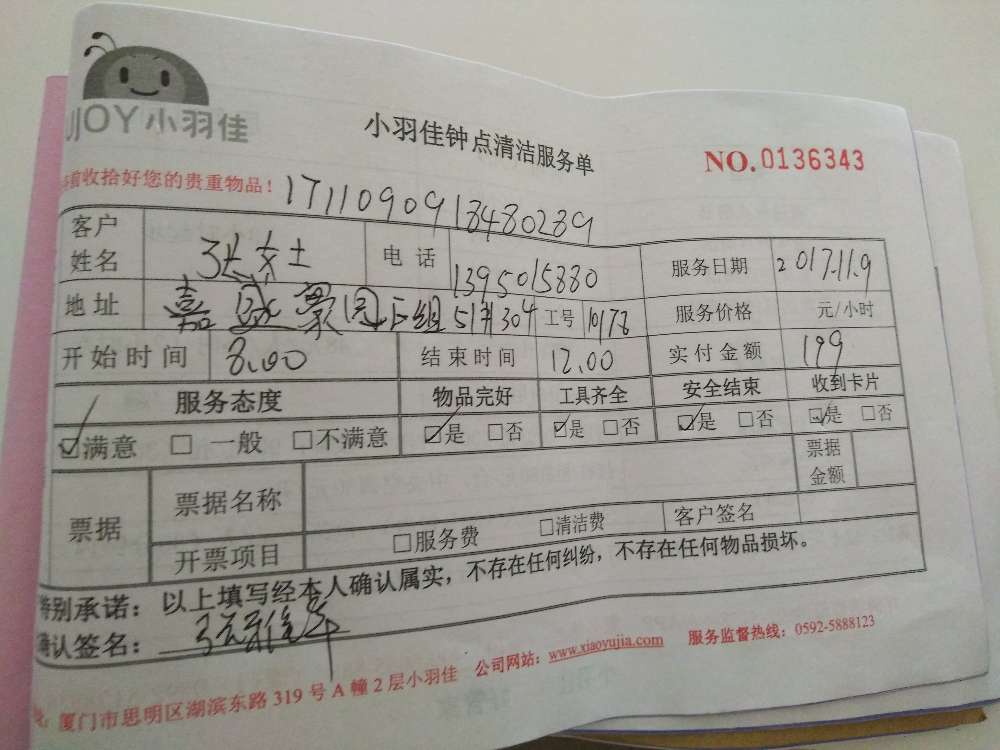 JOY小羽佳
小羽佳钟点清洁服务单
NO.0136343
收拾好您的贵重物品！
1711090918480289
客户姓名 张女士 电话 1395015880 服务日期 2017.11.9
地址 嘉盛豪园 51#304 工号 10178 服务价格 元/小时
开始时间 8.00 结束时间 12.00 实付金额 199
服务态度 物品完好 工具齐全 安全结束 收到卡片
☑满意 □一般 □不满意 ☑是 □否 ☑是 □否 ☑是 □否 ☑是 □否
票据 票据名称 票据金额
开票项目 □服务费 □清洁费 客户签名
特别承诺：以上填写经本人确认属实，不存在任何纠纷，不存在任何物品损坏。
确认签名：
厦门市思明区湖滨东路319号A幢2层小羽佳 公司网站：www.xiaoyujia.com 服务监督热线：0592-5888123